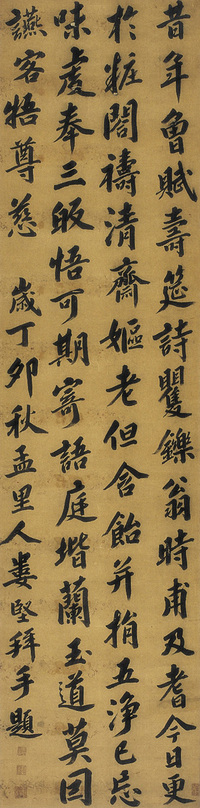 昔年曾賦壽筵詩矍鑠翁時甫及耆今日更
於粧閣禱清齋嫗老但含飴并捐五淨已忘
味虔奉三皈悟可期寄語庭堦蘭玉道莫因
讌客牾尊慈 歲丁卯秋孟里人婁堅拜手題